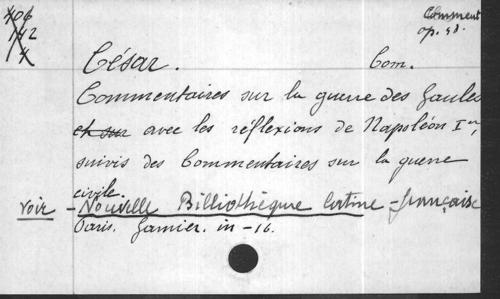 406
142
x
Comment
op. sd.
César. Com.
Commentaires sur la guerre des Gaules
et sur avec les réflexions de Napoléon Ier,
suivis des Commentaires sur la guerre
civile.
voir - Nouvelle Billiothèque latine - française
Paris. Garnier. in - 16.